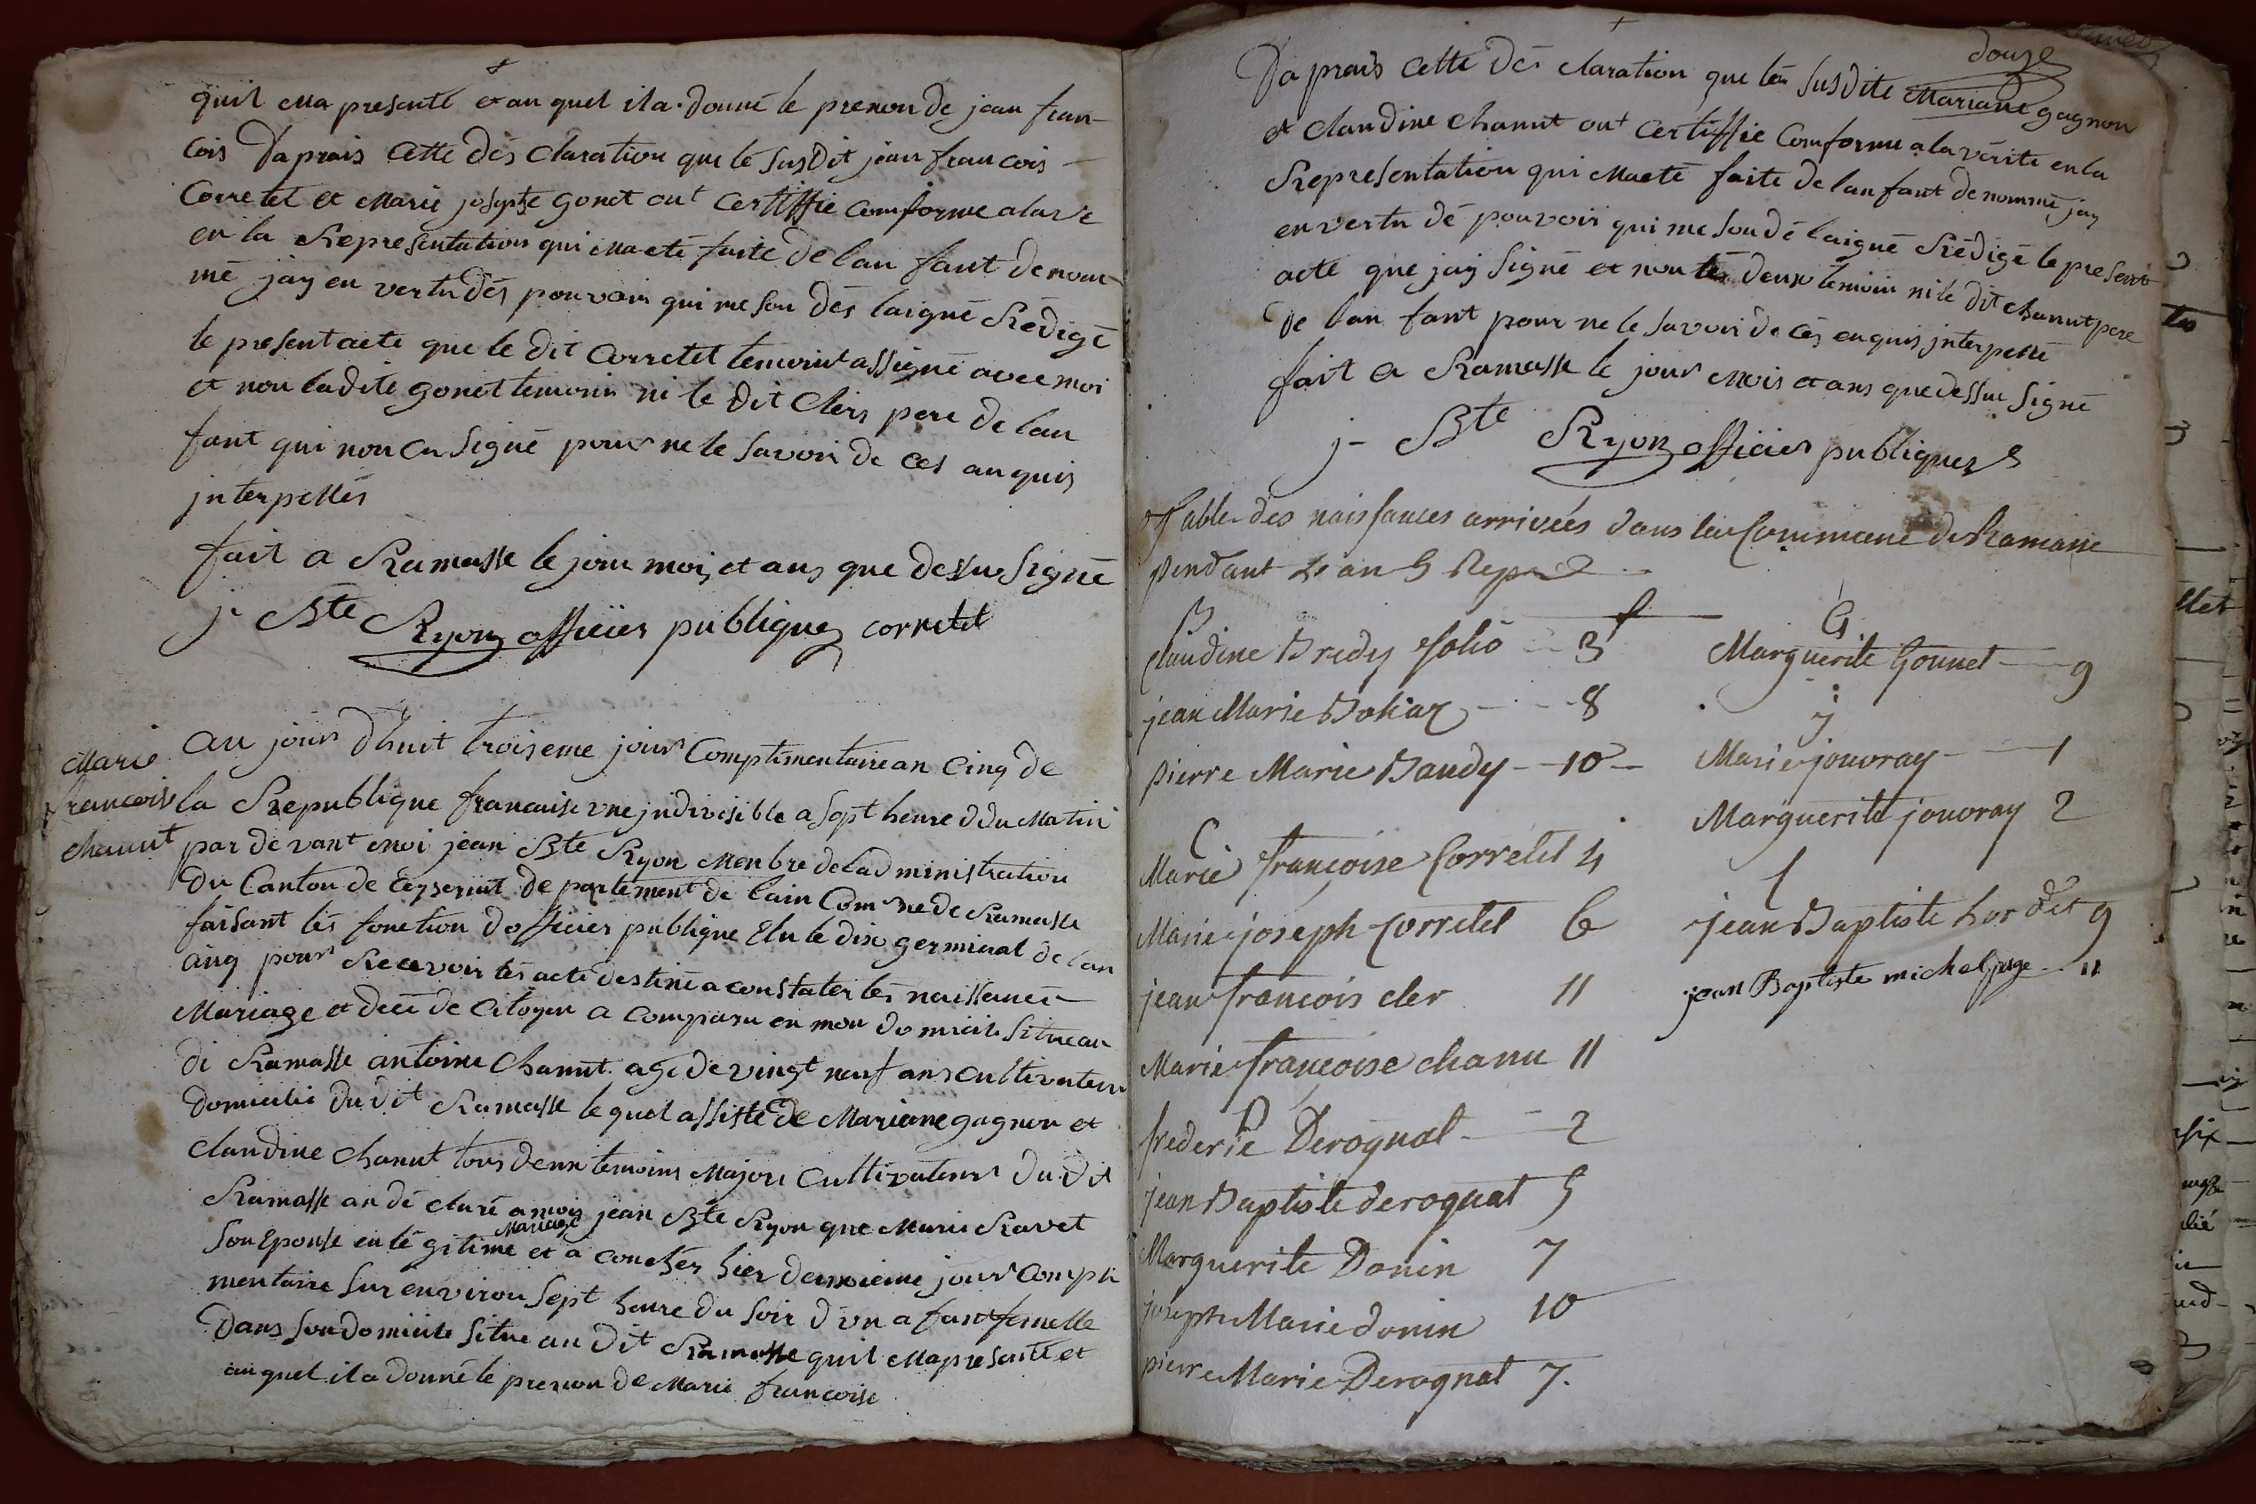 quil ma presenté et au quel il a donné le prenon de jean fran-
cois Da prais cette dés claration que le susdit jean francois
Corretet et Marie josepte gonet ont certiffié comforme a la ve
en la Representation qui ma eté faite de lan fant denom-
mé jay en vertu dés pouvoir qui me son dés laigué Rédigé
le present acte que le dit Corretet temoint assigné avec moi
et non ladite gonet temoin ni le dit Clers pere de lan
fant qui non en signé pour ne le savoir de ces anquis
interpellés
fait a Ramasse le jour mois et ans que desus signé
j- Bte Ryon officier publique corretet
Marie
francoise
chanut
au jour dhuit troiseme jour Complimentaire an Cinq de
la Republique francaise une jndivisible a sept heure du Matin
par de vant moi jean Bte Ryon Menbre de lad ministration
du Canton de Ceyseriat de partement de lain Comne de Ramasse
faisant lés fonction dofficier publique Elu le dix germinal de lan
cinq pour Recevoir lés acte destiné a constater lés naissance
Mariage et decé de Citoyen a comparu en mon domicile situé au
di Ramasse antoine Chanut agé de vingt neuf ans cultivateur
domicilié du dit Ramasse le quel assisté de Mariane gagnon et
claudine Chanut tous deux temoins Majore Cultivateur du dit
Ramasse an dé claré a mois jean Bte Ryon que Marie Ravet
Mariage
son Epouse en lé gitime et a couchér hier deuxieme jour Compli
mentaire sur environ sept heure du soir d'un a fant femelle
Dans son domicile situé au dit Ramasse quil ma presenté et
au quel il a donné le prenon de Marie francoise
douze
Da prais cette dés claration que lés susdite Mariane gagnon
et Claudine Chanut ont certiffié Comforme a la vérité en la
Representation qui ma eté faite de lan fant denommé jay
en vertu dé pouvoir qui me son dé laigué Rédigé le present
acte que jay signé et non lés deux temoin ni le dit chanut pere
de lan fant pour ne le savoir de cés enquis jnterpellé
fait a Ramasse le jour mois et ans que dessu signé
j- Bte Ryon officier publique
Table des naissances arrivées dans la Commune de Ramasse
pendant L'an 5 Repu
B
Claudine Bredy folio 3
jean Marie Bohaz 8
pierre Marie Baudy 10
C
Marie françoise Corretet 4
Marie joseph Corretet 6
jean francois cler 11
Marie françoise chanu 11
D
frederic Derognat 2
jean Baptiste derognat 5
Marguerite Donin 7
joseph Marie donin 10
pierre Marie Derognat 7.
G
Marguerite Gonnet 9
j
Marie jouvray 1
Marguerite jouvray 2
L
jean Baptiste Lordet 9
jean Baptiste michel page 11